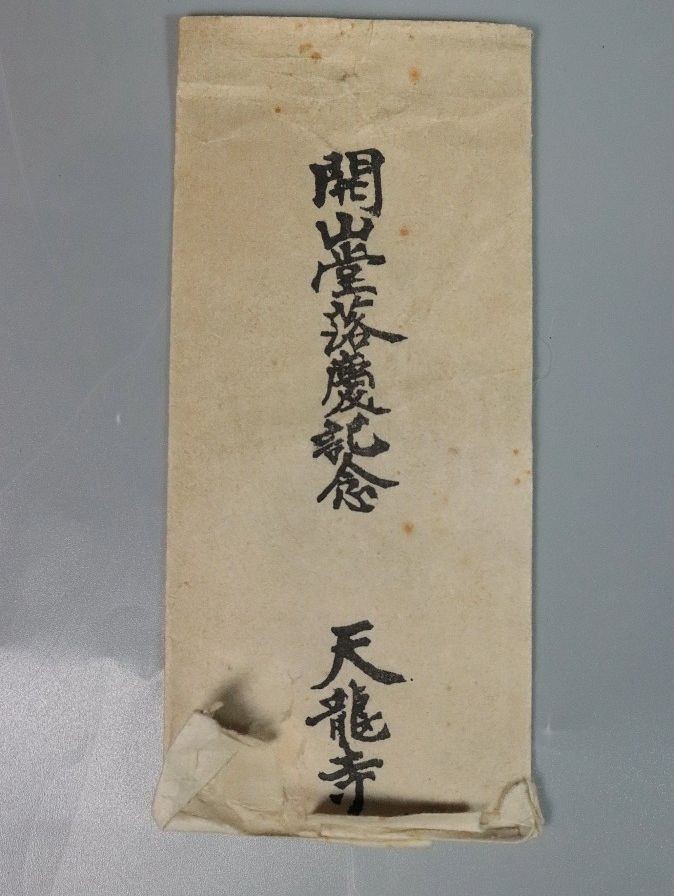 開山堂落慶記念
天龍寺